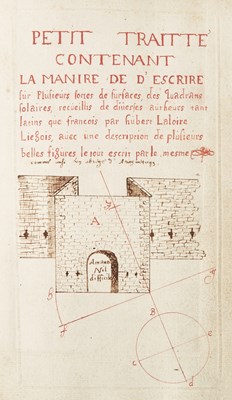 PETIT TRAITTÉ
CONTENANT
LA MANIRE DE D'ESCRIRE
sur Plusieurs sortes de surfaces, des Quadrans
solaires, recueillis de diverses autheurs tant
latins que francois par Hubert Laloire
Liegois, avec une description de plusieurs
belles figures le tout escrit par le mesme
A
Amanti
Nil
difficile
g
d
c
e
d